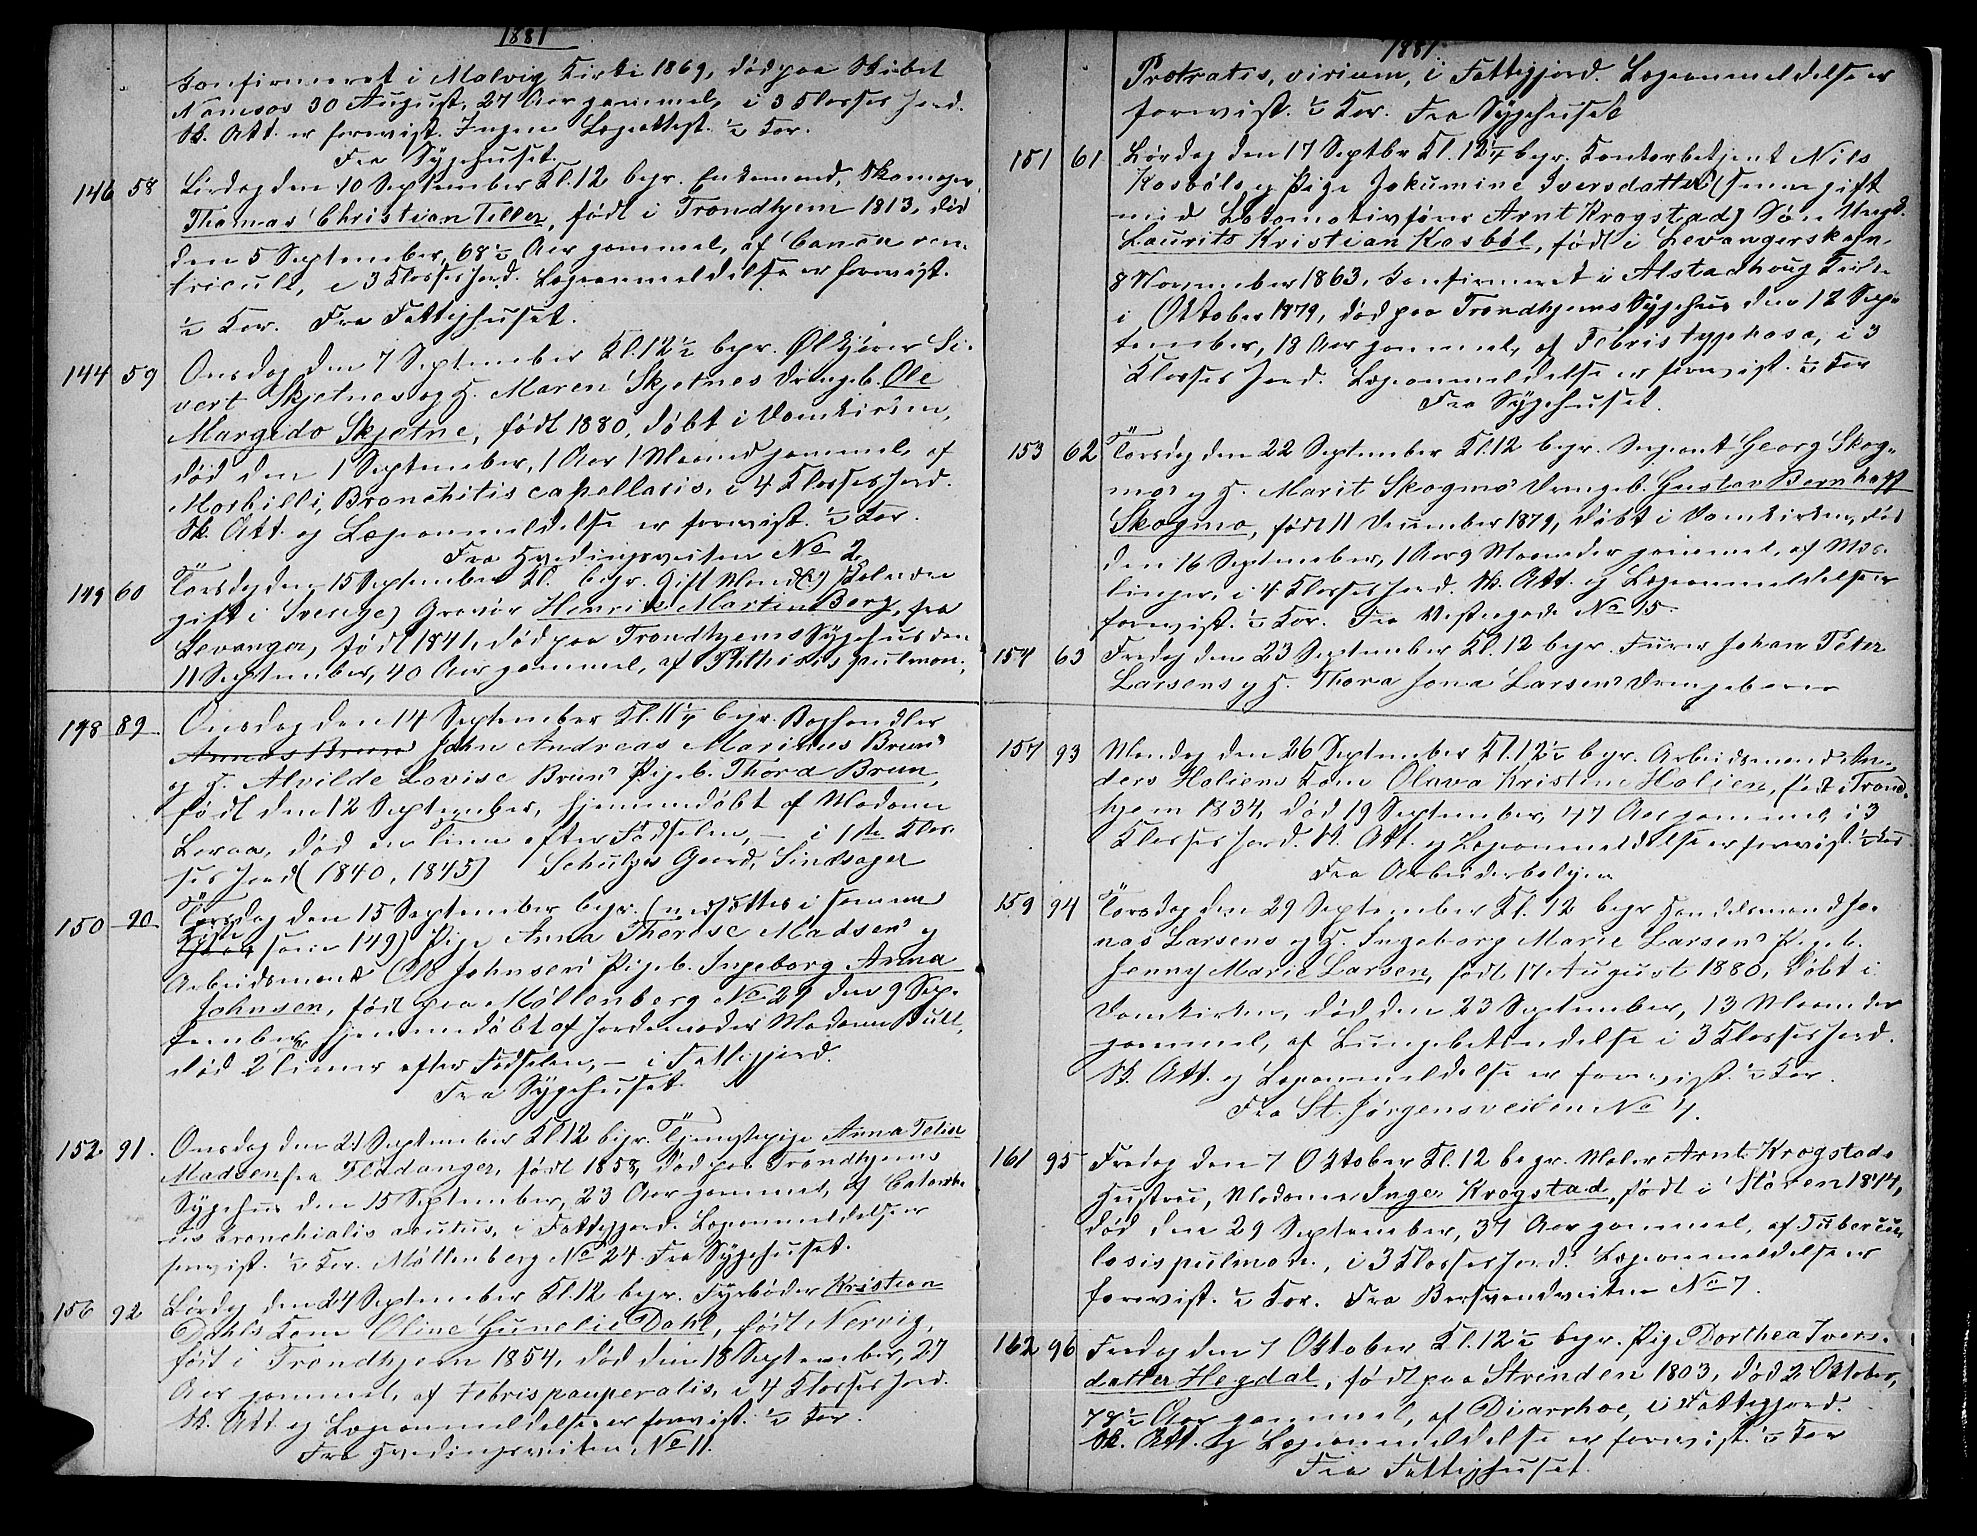 1881
Konfirmeret i Malvig Kirke 1869, død paa Skibet
Namsos 30 August, 27 Aar gammel, i 3 Klasses Jord.
Sk. Att. er forevist. Ingen Lægeattest. ½ Kor.
Fra Sygehuset.
146 58 Lördag den 10 September Kl. 12 begr. Enkemand, Skomager
Thomas Christian Teller, født i Trondhjem 1813, död
den 5 September, 68½ Aar gammel, af Cancer ven-
triculi, i 3 Klasses Jord. Lægeanmeldelse er forevist.
½ Kor. Fra Fattighuset.
144 59 Onsdag den 7 September Kl. 12½ begr. Ølkjører Si-
vert Skjetnes og H. Maren Skjetnes Drengeb. Ole
Margido Skjetne, født 1880, döbt i Domkirken,
död den 1 September, 1 Aar 1 Maaned gammel, af
Morbilli, Bronchitis capellaris, i 4 Klasses Jord.
Sk. Att. og Lægeanmeldelse er forevist. ½ Kor.
Fra Hvedingsveiten No 2
149 60 Torsdag den 15 September Kl. begr. Gift Mand (og
gift i Sverige) Gravør Henrik Martin Berg, fra
Levanger, født 1841, död paa Trondhjems Sygehus den
11 September, 40 Aar gammel, af Phthisis pulmon.
148 89 Onsdag den 14 September Kl. 11¼ begr. Boghandler
John Andreas Marinus Brun's
og H. Alvilde Lovise Brun's Pigeb. Thora Brun,
født den 12 September, hjemmedöbt af Madame
Leraa, död en Time efter Födselen, – i 1ste Klas-
ses Jord (1840, 1845) Schultzes Gaard, Sindsager
150 90 Torsdag den 15 September begr. (nedsættes i samme
Kiste som 149) Pige Anna Therese Madsen's og
Arbeidsmand Ole Johnsens Pigeb. Ingeborg Anna
Johnsen, født paa Møllenberg No 29 den 9 Sep-
tember, hjemmedöbt af Jordemoder Madame Bull,
död 2 Timer efter Födselen, – i Fattigjord.
Fra Sygehuset.
152 91. Onsdag den 21 September Kl 12 begr. Tjenestepige Anna Petra
Madsen fra Fladanger, født 1858, död paa Trondhjems
Sygehus den 15 September, 23 Aar gammel, af Catarrh-
us bronchialis acutus, i Fattigjord. Lægeanmeldelse er
forevist. ½ Kor. Møllenberg No 24. Fra Sygehuset.
156 92 Lördag den 24 September Kl. 12 begr. Fyrböder Kristian
Dahls Kone Oline Gunelie Dahl, født Nervig,
født i Trondhjem 1854, död den 18 September, 27
Aar gammel, af Febris pauperalis, i 4 Klasses Jord.
Sk. Att. og Lægeanmeldelse er forevist. ½ Kor.
Fra Hvedingsveiten No 11.
1881.
Protratis, virium, i Fattigjord. Lægeanmeldelse er
forevist. ½ Kor. Fra Sygehuset
151 61 Lördag den 17 Septbr Kl. 12¼ begr. Kontorbetjent Nils
Kosböls og Pige Jokumine Iversdatter's (senere gift
med Lokomotivförer Arnt Krogstad) Sön Ungk.
Laurits Kristian Kosböl, født i Levangerskogn.
8 November 1863, Konfirmeret i Alstadhoug Kirke
i Oktober 1879, död paa Trondhjems Sygehus den 12 Sep-
tember, 18 Aar gammel, af Febris typhosa, i 3
Klasses Jord. Lægeanmeldelse er forevist. ½ Kor
Fra Sygehuset.
153 62 Torsdag den 22 September Kl. 12 begr. Sergeant Georg Skog-
mo's og H. Marit Skogmo's Drengeb. Gustav Bernhoff
Skogmo, født 11 December 1879, döbt i Domkirken, död
den 16 September, 1 Aar 9 Maaneder gammel, af Mæs-
linger, i 4 Klasses Jord. Sk. Att. og Lægeanmeldelse er
forevist. ½ Kor. Fra Vestregade No 15.
154 63 Fredag den 23 September Kl. 12 begr. Furer Johan Peter
Larsens og H. Thora Jona Larsen's Drengebarn
157 93 Mandag den 26 September Kl. 12½ begr. Arbeidsmand An-
ders Holiens Kone Olava Kristine Holien, født i Trond-
hjem 1834, död 19 September, 47 Aar gammel, i 3
Klasses Jord. Sk. Att. og Lægeanmeldelse er forevist. ½ Kor
Fra Arbeiderboligen
159 94 Torsdag den 29 September Kl. 12 begr. Handelsmand Jo-
nas Larsens og H. Ingeborg Marie Larsen's Pigeb.
Jenny Marie Larsen, født 17 August 1880, döbt i
Domkirken, död den 23 September, 13 Maaneder
gammel, af Lungebetændelse i 3 Klasses Jord.
Sk. Att. og Lægeanmeldelse er forevist. ½ Kor.
Fra St. Jörgensveiten No 4.
161 95 Fredag den 7 Oktober Kl. 12 begr. Maler Arnt Krogstads
Hustru, Madame Inger Krogstad, født i Støren 1844,
död den 29 September, 37 Aar gammel, af Tubercu-
losis pulmon., i 3 Klasses Jord. Lægeanmeldelse er
forevist. ½ Kor. Fra Bersvendveiten No 7.
162 96 Fredag den 7 Oktober Kl. 12½ begr. Pige Dorthea Ivers-
datter Hegdal, født paa Strinden 1803, död 2 Oktober,
78½ Aar gammel, af Diarrhoe, i Fattigjord.
Sk. Att. og Lægeanmeldelse er forevist. ½ Kor
Fra Fattighuset.